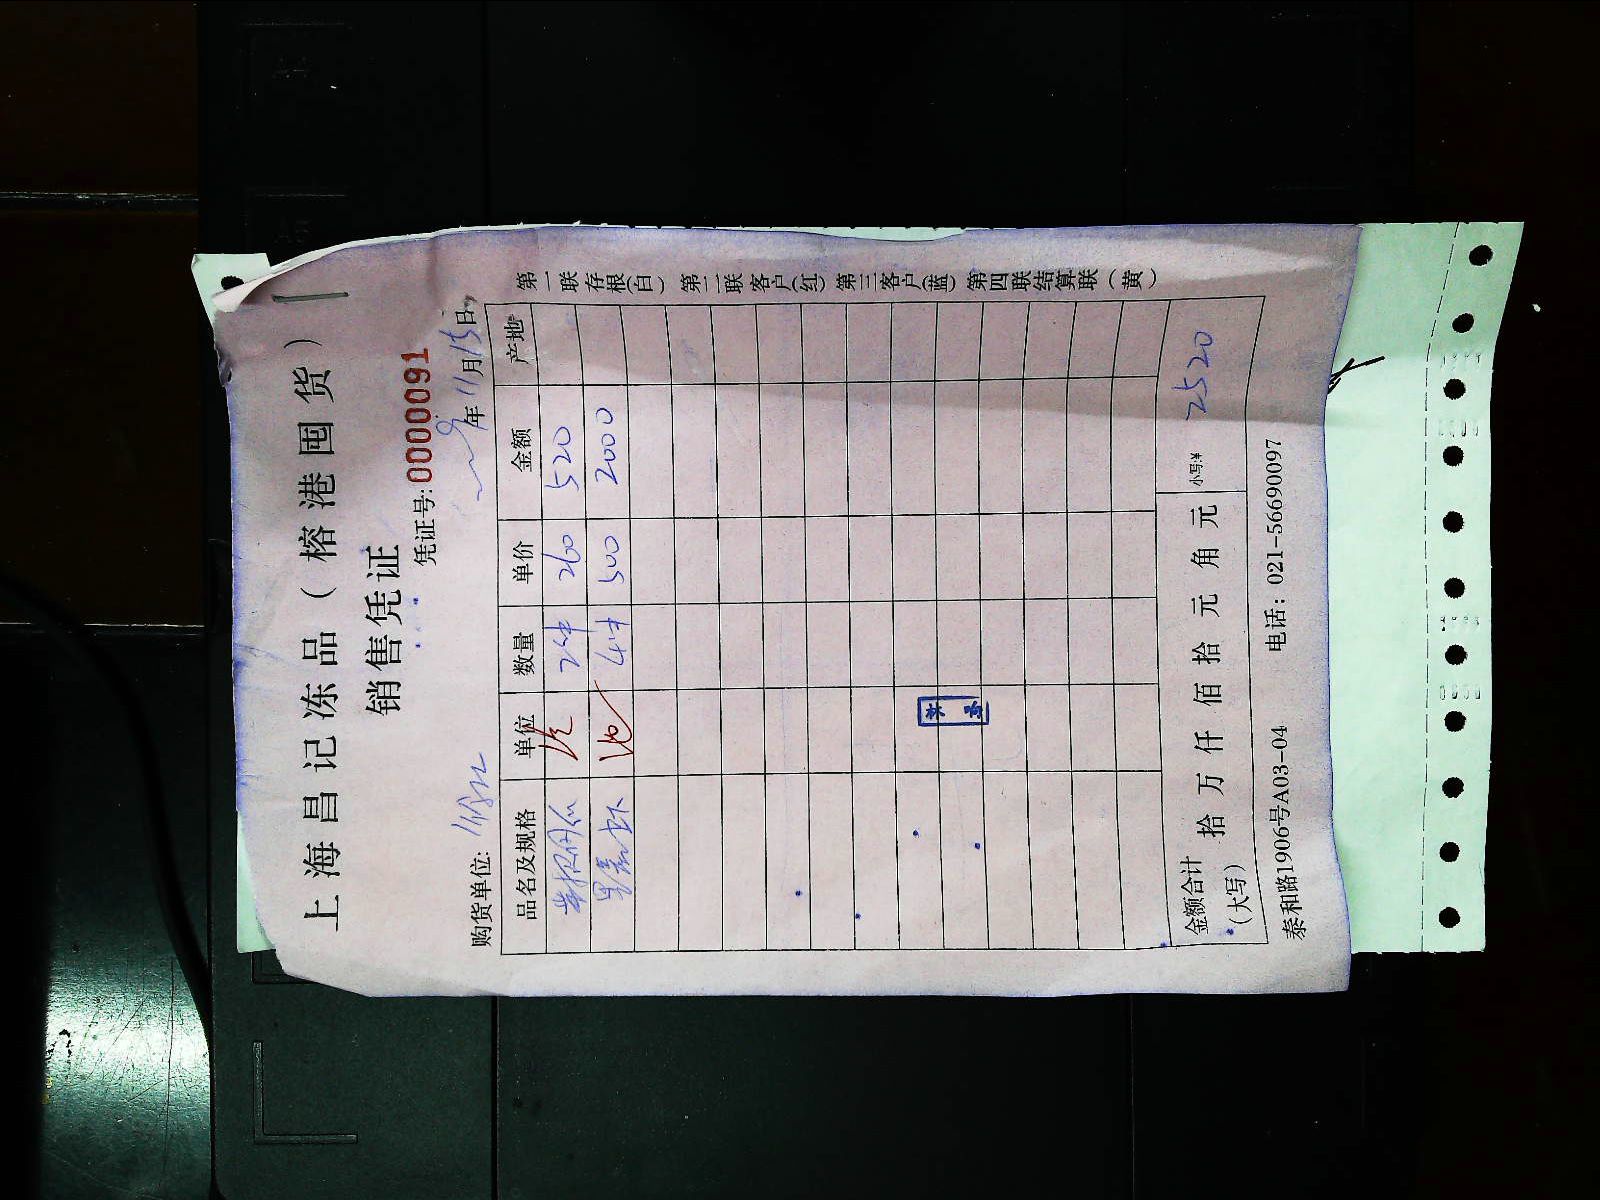 上海昌记冻品（榕港囤货）
销售凭证
凭证号:0000091
年11月15日
购货单位:
品名及规格 单位 数量 单价 金额 产地
2件 260 520
4件 500 2000
金额合计（大写） 拾 万 仟 佰 拾 元 角 元 小写:¥ 2520
泰和路1906号A03-04 电话：021-56690097
第一联存根(白) 第二联客户(红) 第三客户(蓝) 第四联结算联（黄）